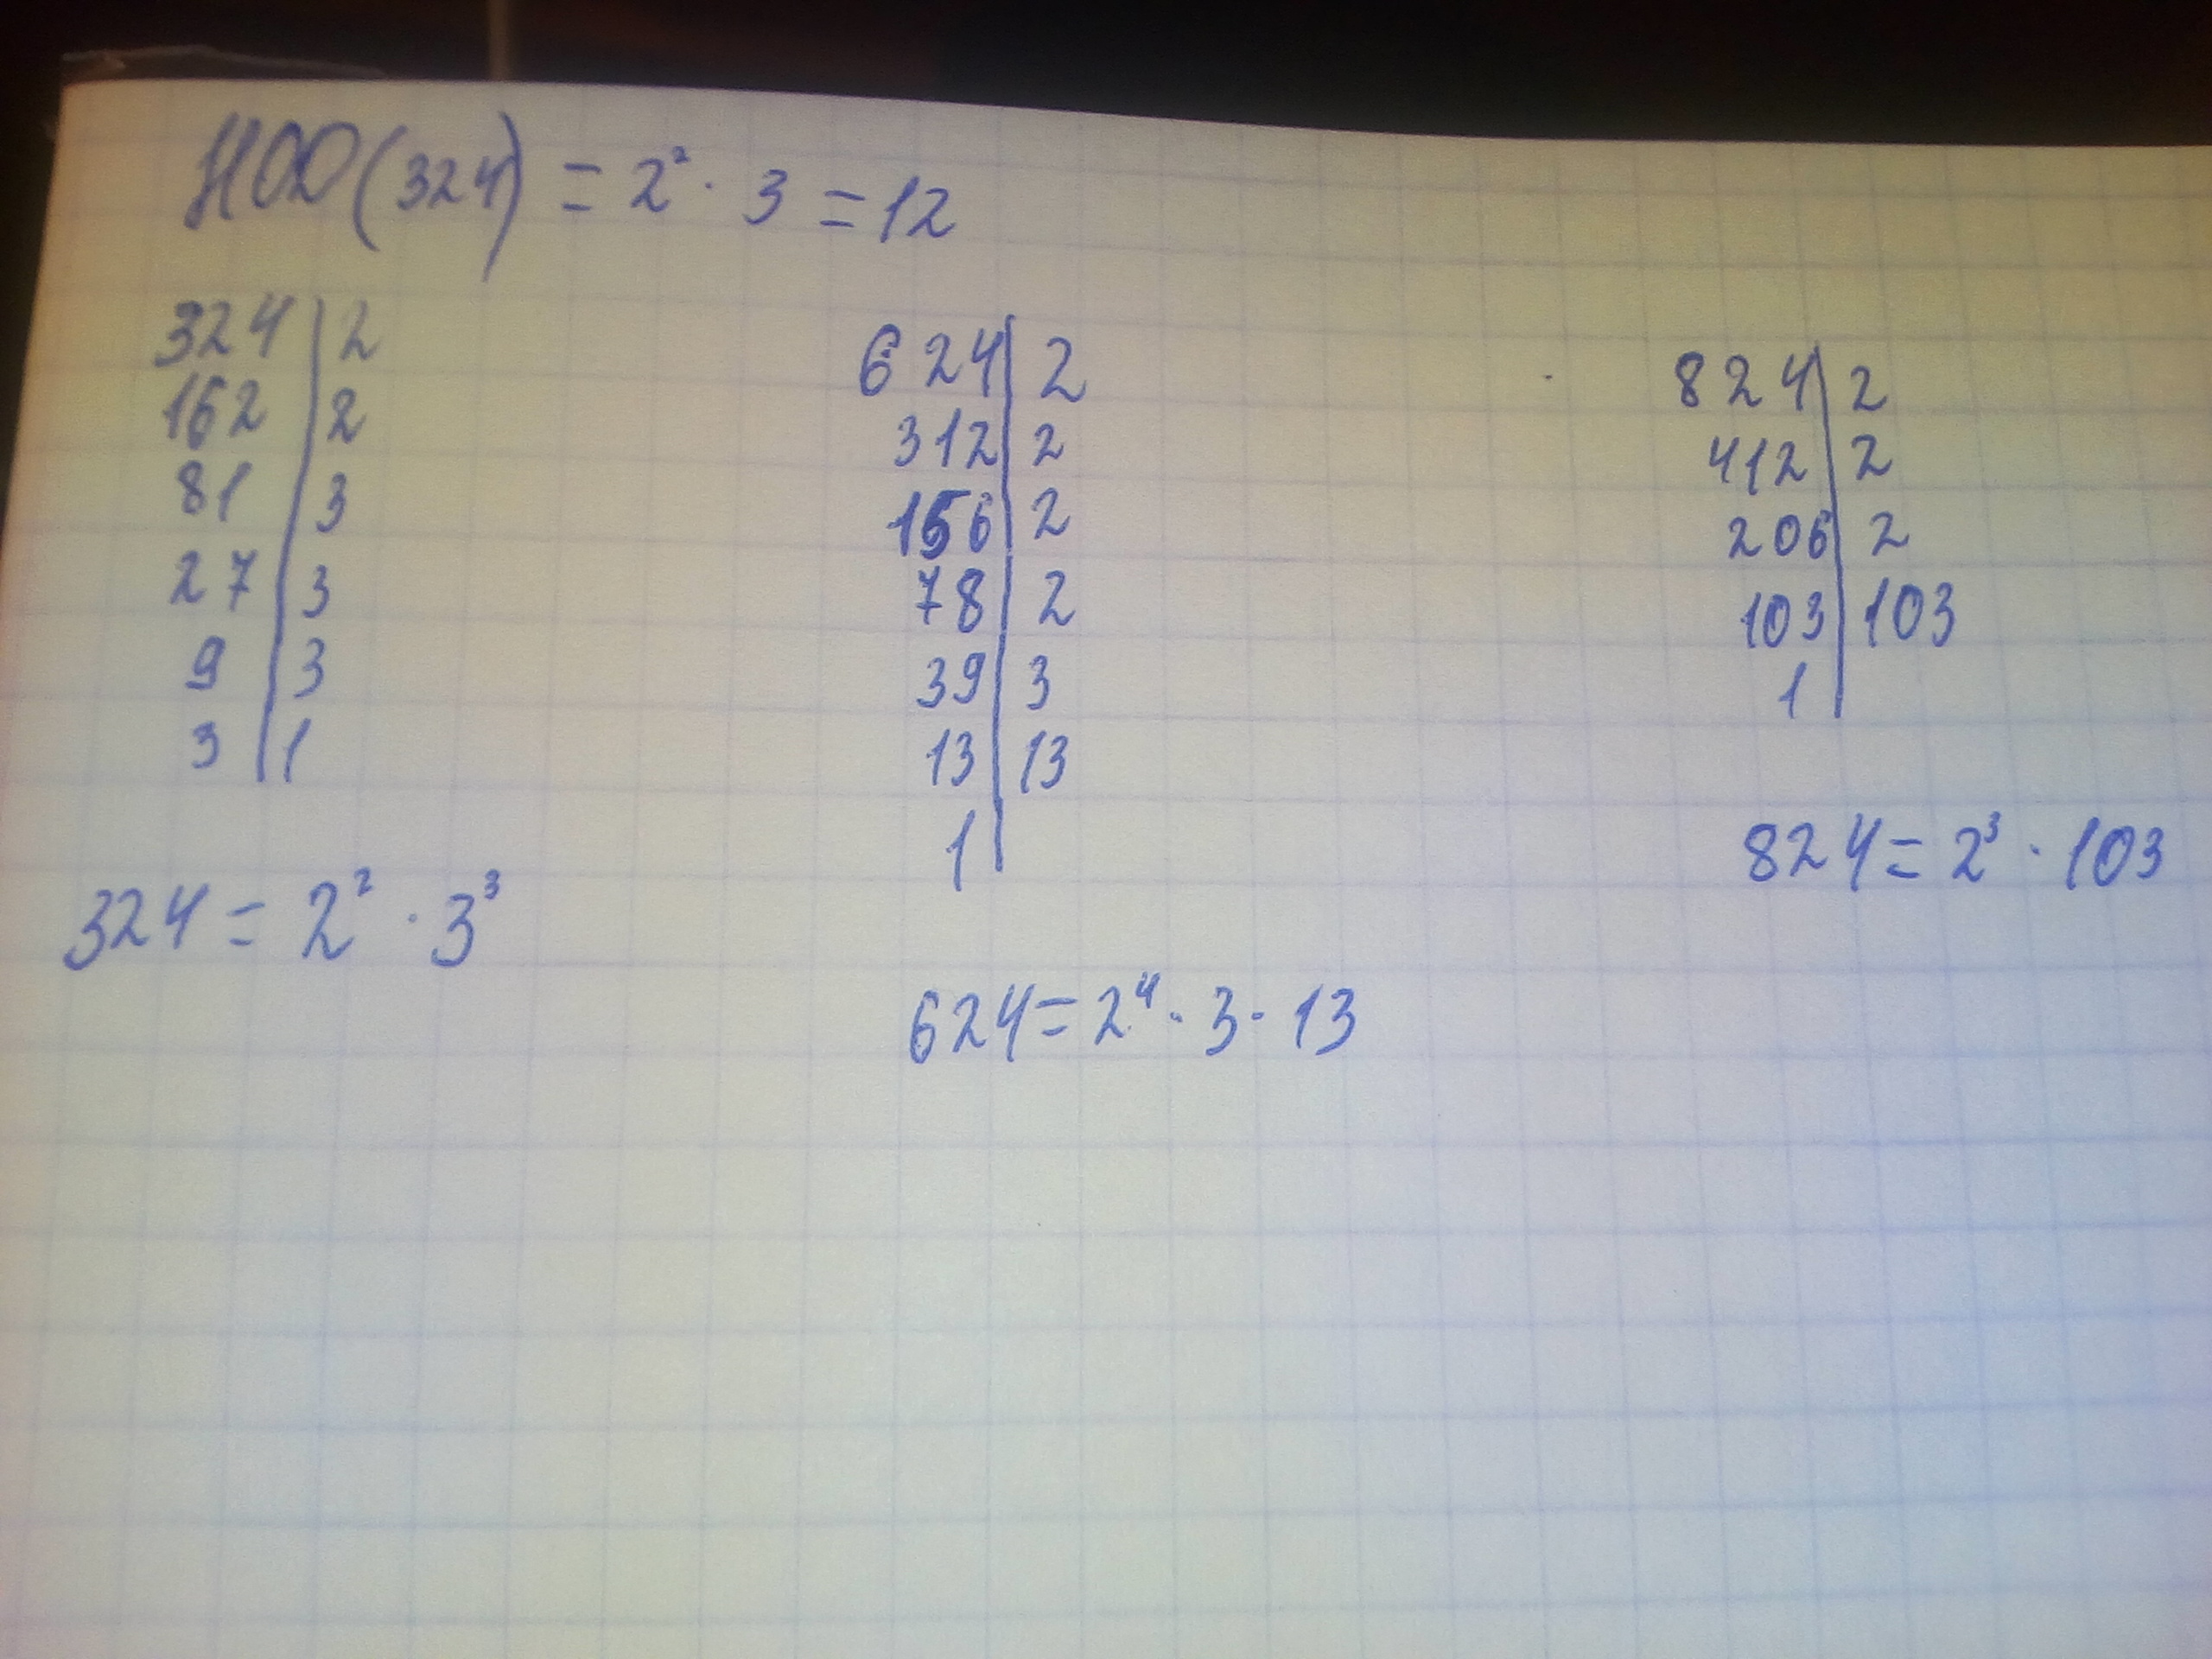 НОД(324) = 2² · 3 = 12
324 | 2
162 | 2
81 | 3
27 | 3
9 | 3
3 | 1
324 = 2² · 3³
624 | 2
312 | 2
156 | 2
78 | 2
39 | 3
13 | 13
1 |
624 = 2⁴ · 3 · 13
824 | 2
412 | 2
206 | 2
103 | 103
1 |
824 = 2³ · 103